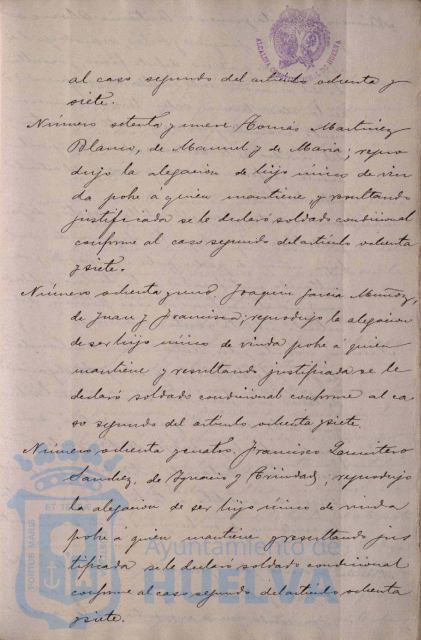 al caso segundo del artículo ochenta y
siete.
Número setenta y nueve Tomás Martínez
Blanco, de Manuel y de María; repro
dujo la alegacion de hijo único de viu
da pobre á quien mantiene, y resultando
justificada se le declaró soldado condicional
conforme al caso segundo del artículo ochenta
y siete.
Número ochenta y uno. Joaquin Garcia Muñoz,
de Juan y Francisca; reprodujo la alegacion
de ser hijo único de viuda pobre á quien
mantiene y resultando justificada se le
declaró soldado condicional conforme al ca
so segundo del artículo ochenta y siete.
Número ochenta y cuatro, Francisco Quintero
Sanchez, de Ignacio y Trinidad; reprodujo
la alegacion de ser hijo único de viuda
pobre á quien mantiene y resultando jus
tificada se le declaró soldado condicional
conforme al caso segundo del artículo ochenta
y siete.
Ayuntamiento de
HUELVA
PORTUS MARIS
ET TE